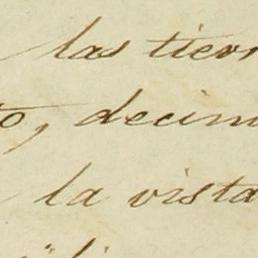 las tier
to, decim
la vista